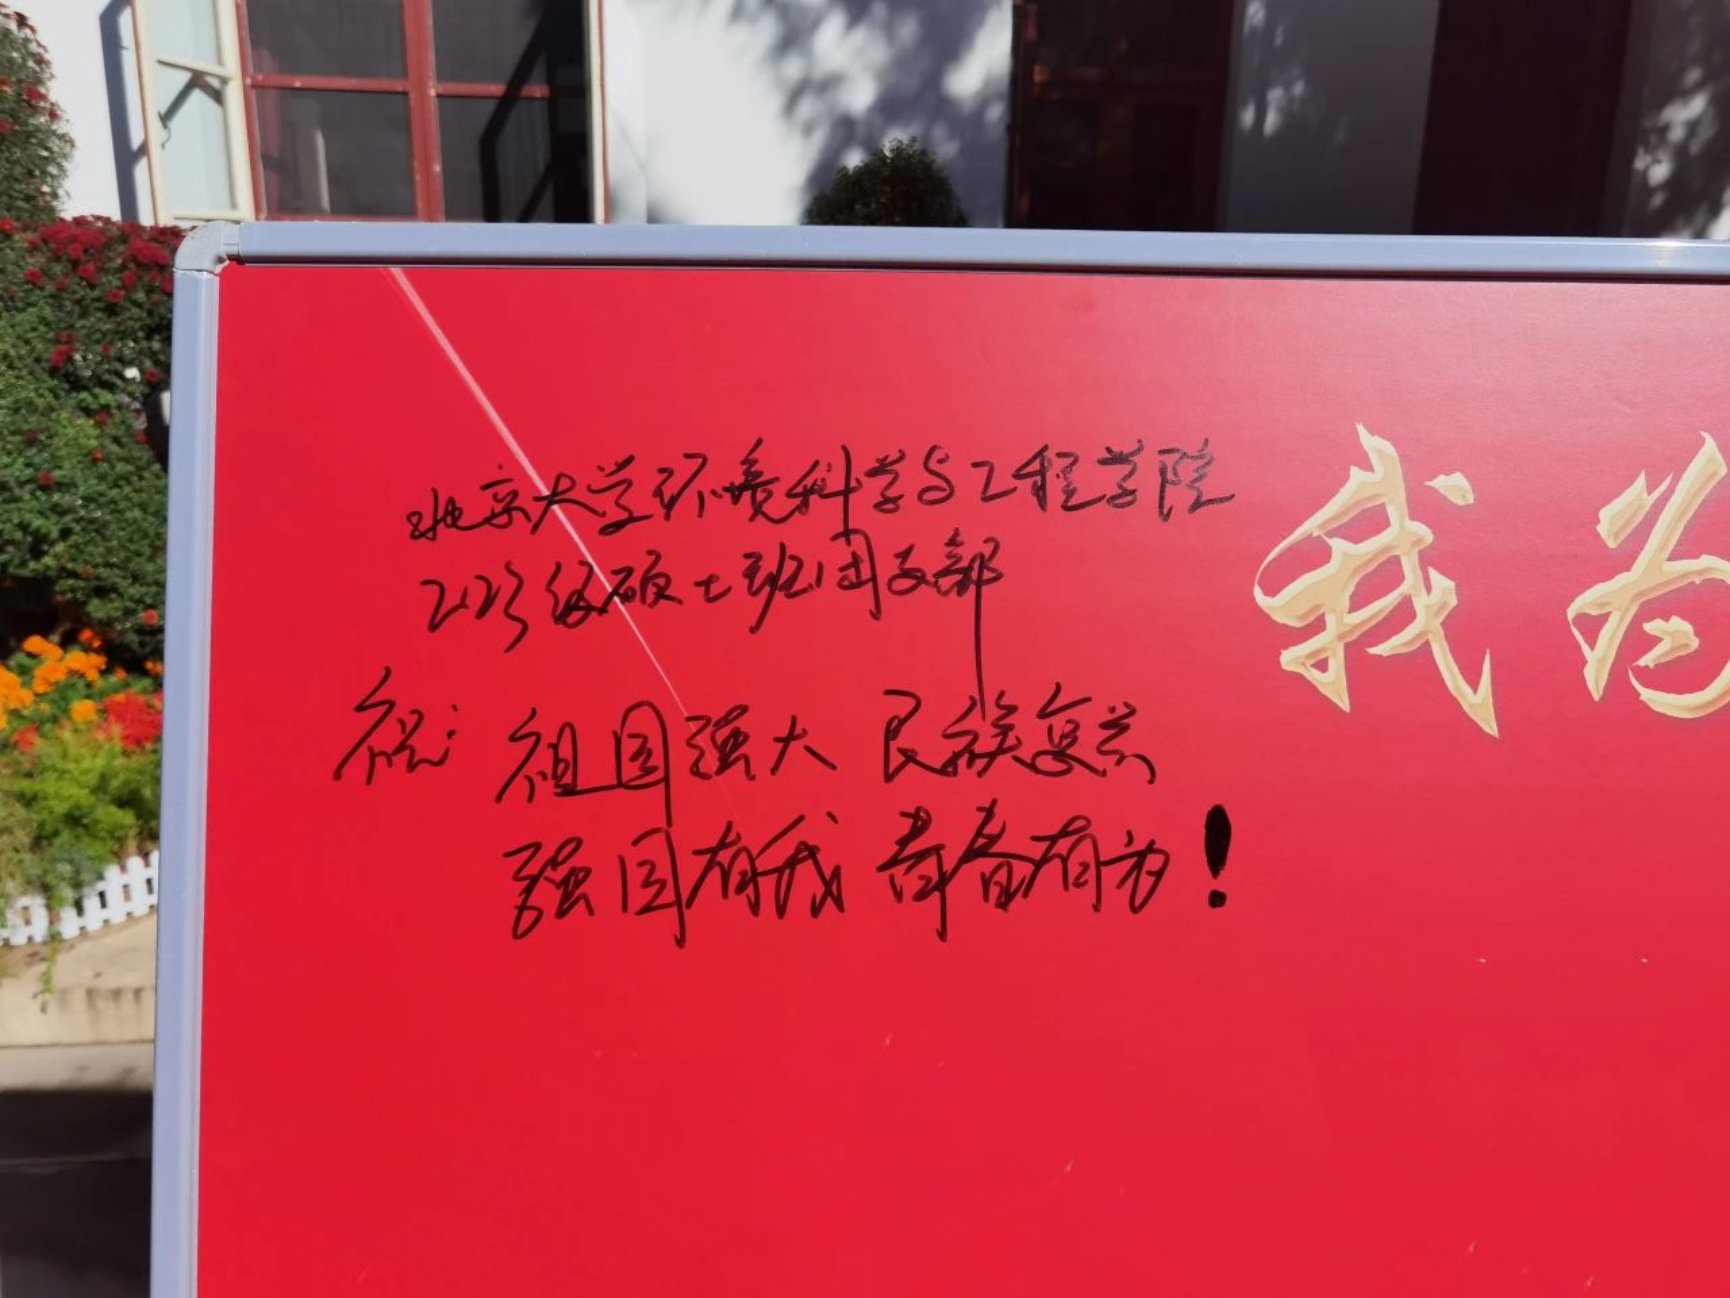 北京大学环境科学与工程学院
2023级硕士班团支部
祝: 祖国强大 民族复兴
强国有我 青春有为!
我为